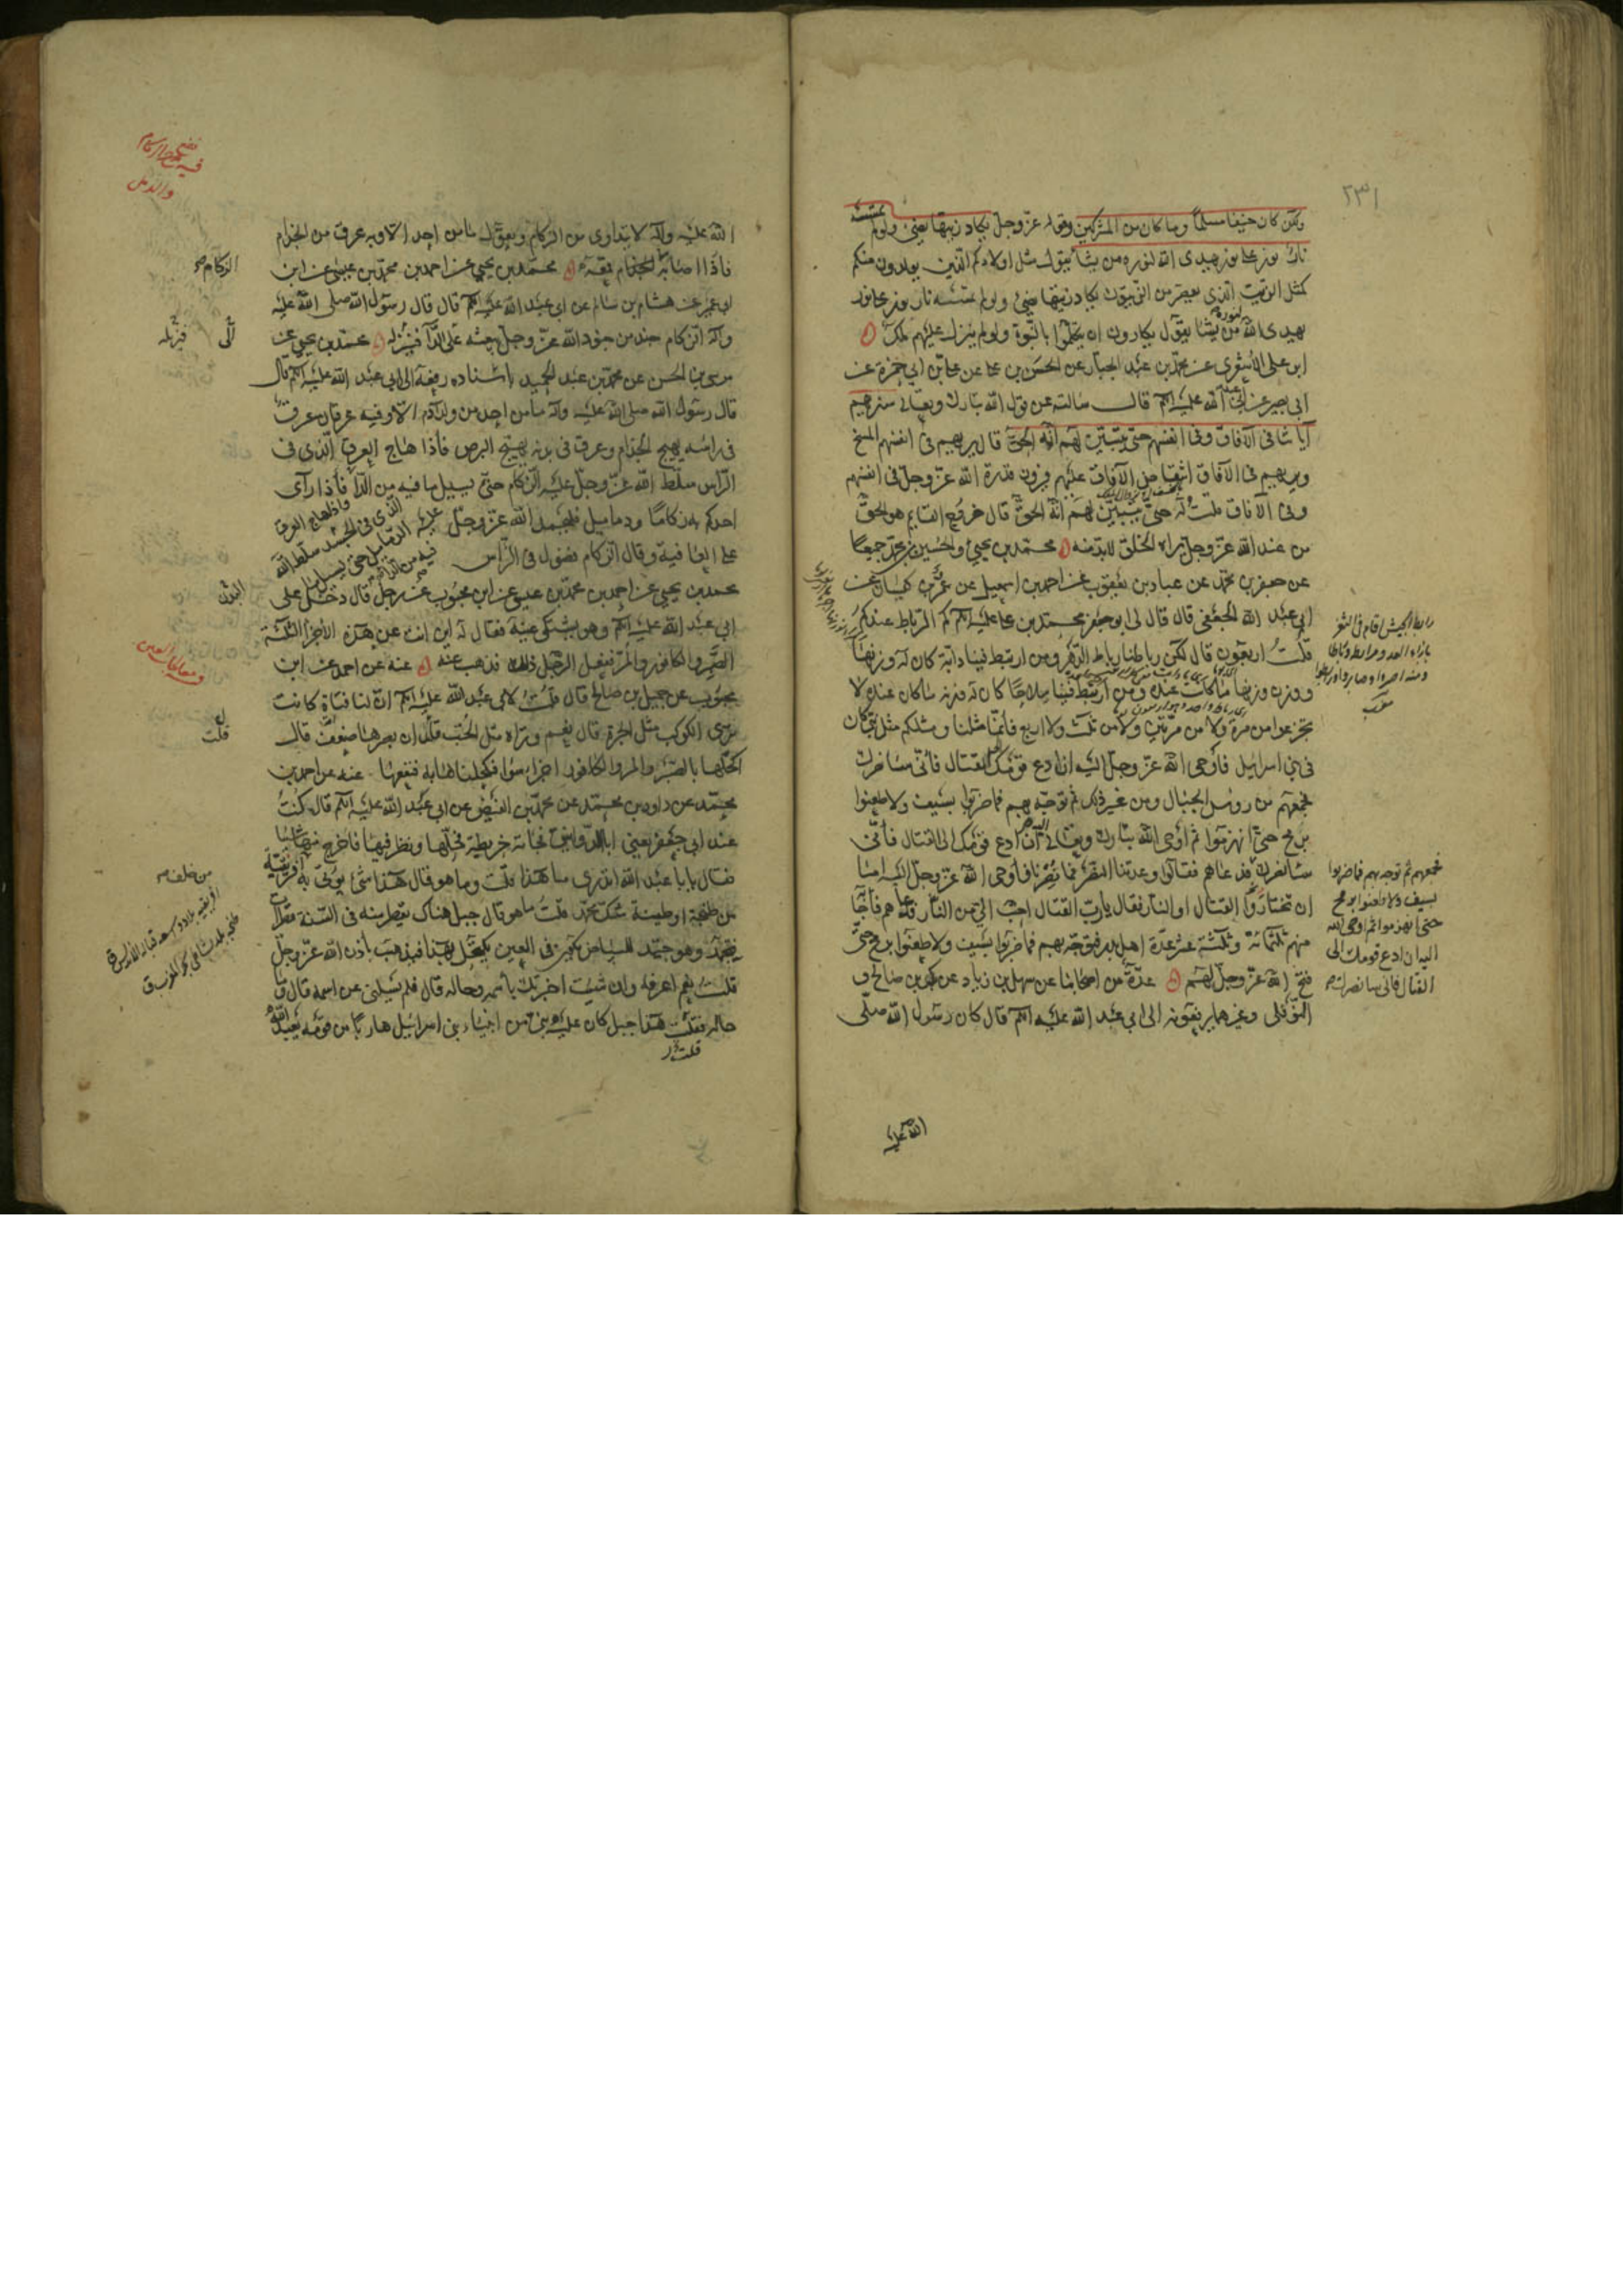 ولكن كان حنيفا مسلما وما كان من المشركين وقوله عز وجل يكاد زيتها يضئ ولو لم تمسسه
نار نور على نور يهدى الله لنوره من يشاء يقول مثل اولادكم الذين يولدون منكم
كمثل الزيت الذي يعصر من الزيتون يكاد زيتها يضئ ولو لم تمسسه نار نور على نور
يهدى الله لنوره من يشا يقول يكادون ان يتكلموا بالنبوة ولو لم ينزل عليهم ملك
ابو على الاشعرى عن محمد بن عبد الجبار عن الحسن بن على عن على بن ابي حمزة عن
ابي بصير عن ابي عبد الله عليه السلم قال سالته عن قول الله تبارك وتعالى سنريهم
آياتنا فى الآفاق وفى انفسهم حتى يتبين لهم انه الحق قال يريهم فى انفسهم المسخ
ويريهم فى الآفاق انتقاض الآفاق عليهم فيرون قدرة الله عز وجل فى انفسهم
وفى الآفاق قلت له حتى يتبين لهم انه الحق قال خروج القايم هو الحق
من عند الله عز وجل يراه الخلق لابد منه محمد بن يحيى والحسين بن محمد جميعا
عن جعفر بن محمد عن عباد بن يعقوب عن احمد بن اسمعيل عن عمرو بن كيسان عن
ابي عبد الله الجعفى قال قال لى ابو جعفر محمد بن على عليه السلم كم الرباط عندكم
قلت اربعون قال لكن رباطنا رباط الدهر ومن ارتبط فينا دابة كان له وزنها
ووزن وزنها ما كانت عنده ومن ارتبط فينا سلاحا كان له وزنه ما كان عنده لا
تجزعوا من مرة ولا من مرتين ولا من ثلث ولا اربع فانما مثلنا ومثلكم مثل نبى كان
فى بنى اسرائيل فاوحى الله عز وجل اليه ان ادع قومك للقتال فانى سانصرك
فجمعهم من روس الجبال ومن غير ذلك ثم توجه بهم فما ضربوا بسيف ولا طعنوا
برمح حتى انهزموا ثم اوحى الله تبارك وتعالى اليه ان ادع قومك الى القتال فانى
سانصرك فدعاهم فقالوا وعدتنا النصر فما نصرنا فاوحى الله عز وجل اليه اما
ان تختاروا القتال او النار فقال يا رب القتال احب الي من النار فدعاهم فاجابه
منهم ثلثمائة وثلثة عشر عدة اهل بدر فتوجه بهم فما ضربوا بسيف ولا طعنوا برمح حتى
فتح الله عز وجل لهم عدة من اصحابنا عن سهل بن زياد عن بكر بن صالح و
النوفلى وغيرهما يرفعونه الى ابي عبد الله عليه السلم قال كان رسول الله صلى
رابط الجيش اقام فى الثغر
بازاء العدو مرابطة ورباطا
ومنه اصبروا وصابروا ورابطوا
فجمعهم ثم توجه بهم فما ضربوا
بسيف ولا طعنوا برمح
حتى انهزموا ثم اوحى الله
اليه ان ادع قومك الى
القتال فانى سانصرك
الله عليه
الله عليه وآله لا يتداوى من الزكام ويقول ما من احد الا وبه عرق من الجذام
فاذا اصابه الجذام قمعه محمد بن يحيى عن احمد بن محمد بن عيسى عن ابن
ابي عمير عن هشام بن سالم عن ابي عبد الله عليه السلم قال قال رسول الله صلى الله عليه
وآله الزكام جند من جنود الله عز وجل يبعثه على الداء فينزله محمد بن يحيى عن
موسى بن الحسن عن محمد بن عبد الحميد باسناده رفعه الى ابي عبد الله عليه السلم قال
قال رسول الله صلى الله عليه وآله ما من احد من ولد آدم الا وفيه عرقان عرق
فى راسه يهيج الجذام وعرق فى بدنه يهيج البرص فاذا هاج العرق الذى فى
الراس سلط الله عز وجل عليه الزكام حتى يسيل ما فيه من الداء فاذا راى
احدكم به زكاما ودماميل فليحمد الله عز وجل
على العافية وقال الزكام فضول فى الراس
واذا هاج العرق
الذى فى الجسد سلط الله
عليه الدماميل حتى يسيل ما
فيه من الداء
محمد بن يحيى عن احمد بن محمد بن عيسى عن ابن محبوب عن رجل قال دخل على
ابي عبد الله عليه السلم وهو يشتكى عينيه فقال له اين انت عن هذه الاجزاء الثلثة
الصبر والكافور والمر ففعل الرجل ذلك فذهب عنه عنه عن احمد عن ابن
محبوب عن جميل بن صالح قال قلت لابي عبد الله عليه السلم ان لنا فتاة كانت
ترى الكوكب مثل الجرة قال نعم وتراه مثل الحب قلت ان بصرها ضعف قال
اكحلها بالصبر والمر والكافور اجزاء سوا فكحلناها به فنفعها عنه عن احمد بن
محمد عن داود بن محمد عن محمد بن الفيض عن ابي عبد الله عليه السلم قال كنت
عند ابي جعفر يعنى ابا الدوانيق فجائته خريطة فحلها ونظر فيها فاخرج منها شيئا
فقال يا با عبد الله اتدرى ما هذا قلت وما هو قال هذا شئ يوتى به من خلف افريقية
من طنجة او طبنة شك محمد قلت ما هو قال جبل هناك يقطر منه فى السنة قطرات
فتجمد وهو جيد للبياض يكون فى العين يكتحل بهذا فيذهب باذن الله عز وجل
قلت نعم اعرفه وان شئت اخبرتك باسمه وحاله قال فلم يسئلنى عن اسمه قال وما
حاله فقلت هذا جبل كان عليه نبى من انبياء بنى اسرائيل هاربا من قومه يعبد الله
الزكام
الى
قلت
من خلف